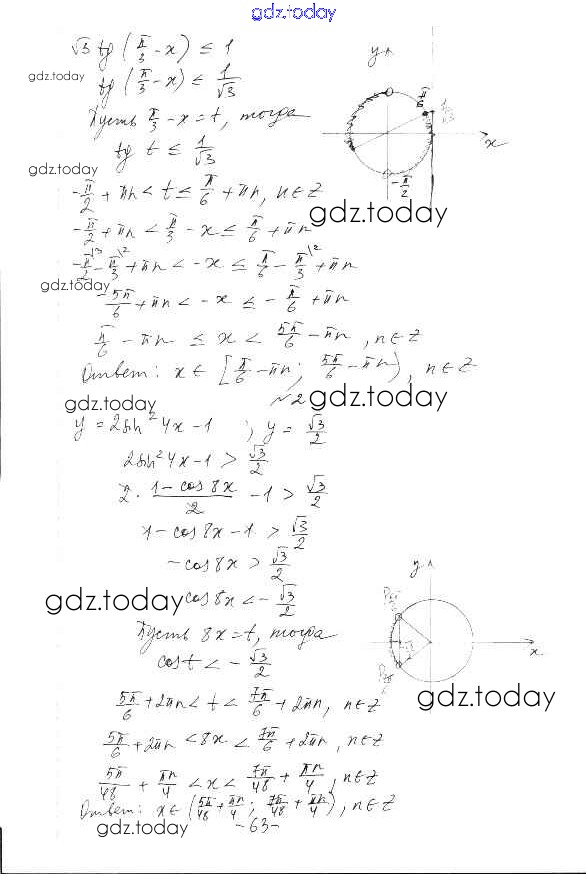 gdz.today
√3 tg (π/3 - x) ≤ 1
gdz.today
tg (π/3 - x) ≤ 1/√3
Пусть π/3 - x = t, тогда
tg t ≤ 1/√3
y
π/6
1/√3
x
-π/2
gdz.today
-π/2 + πn < t ≤ π/6 + πn, n ∈ Z
gdz.today
-π/2 + πn < π/3 - x ≤ π/6 + πn
-π/2 \3 - π/3 \2 + πn < -x ≤ π/6 - π/3 \2 + πn
gdz.today
-5π/6 + πn < -x ≤ -π/6 + πn
π/6 - πn ≤ x < 5π/6 - πn, n ∈ Z
Ответ: x ∈ [π/6 - πn; 5π/6 - πn), n ∈ Z
gdz.today
№2
gdz.today
y = 2sin² 4x - 1 ; y = √3/2
2sin² 4x - 1 > √3/2
2 · (1 - cos 8x)/2 - 1 > √3/2
1 - cos 8x - 1 > √3/2
-cos 8x > √3/2
gdz.today
cos 8x < -√3/2
Пусть 8x = t, тогда
cos t < -√3/2
y
x
gdz.today
5π/6 + 2πn < t < 7π/6 + 2πn, n ∈ Z
5π/6 + 2πn < 8x < 7π/6 + 2πn, n ∈ Z
5π/48 + πn/4 < x < 7π/48 + πn/4, n ∈ Z
Ответ: x ∈ (5π/48 + πn/4; 7π/48 + πn/4), n ∈ Z
gdz.today
-63-